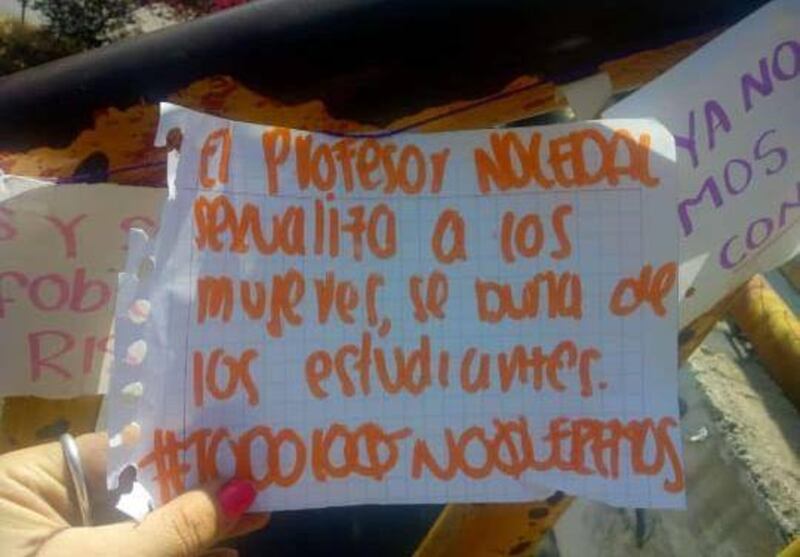 El Profesor NOCEDAL
sexualiza a los
mujeres, se burla de
los estudiantes.
YA NO
MOS
CON
S Y S
fob
RIS